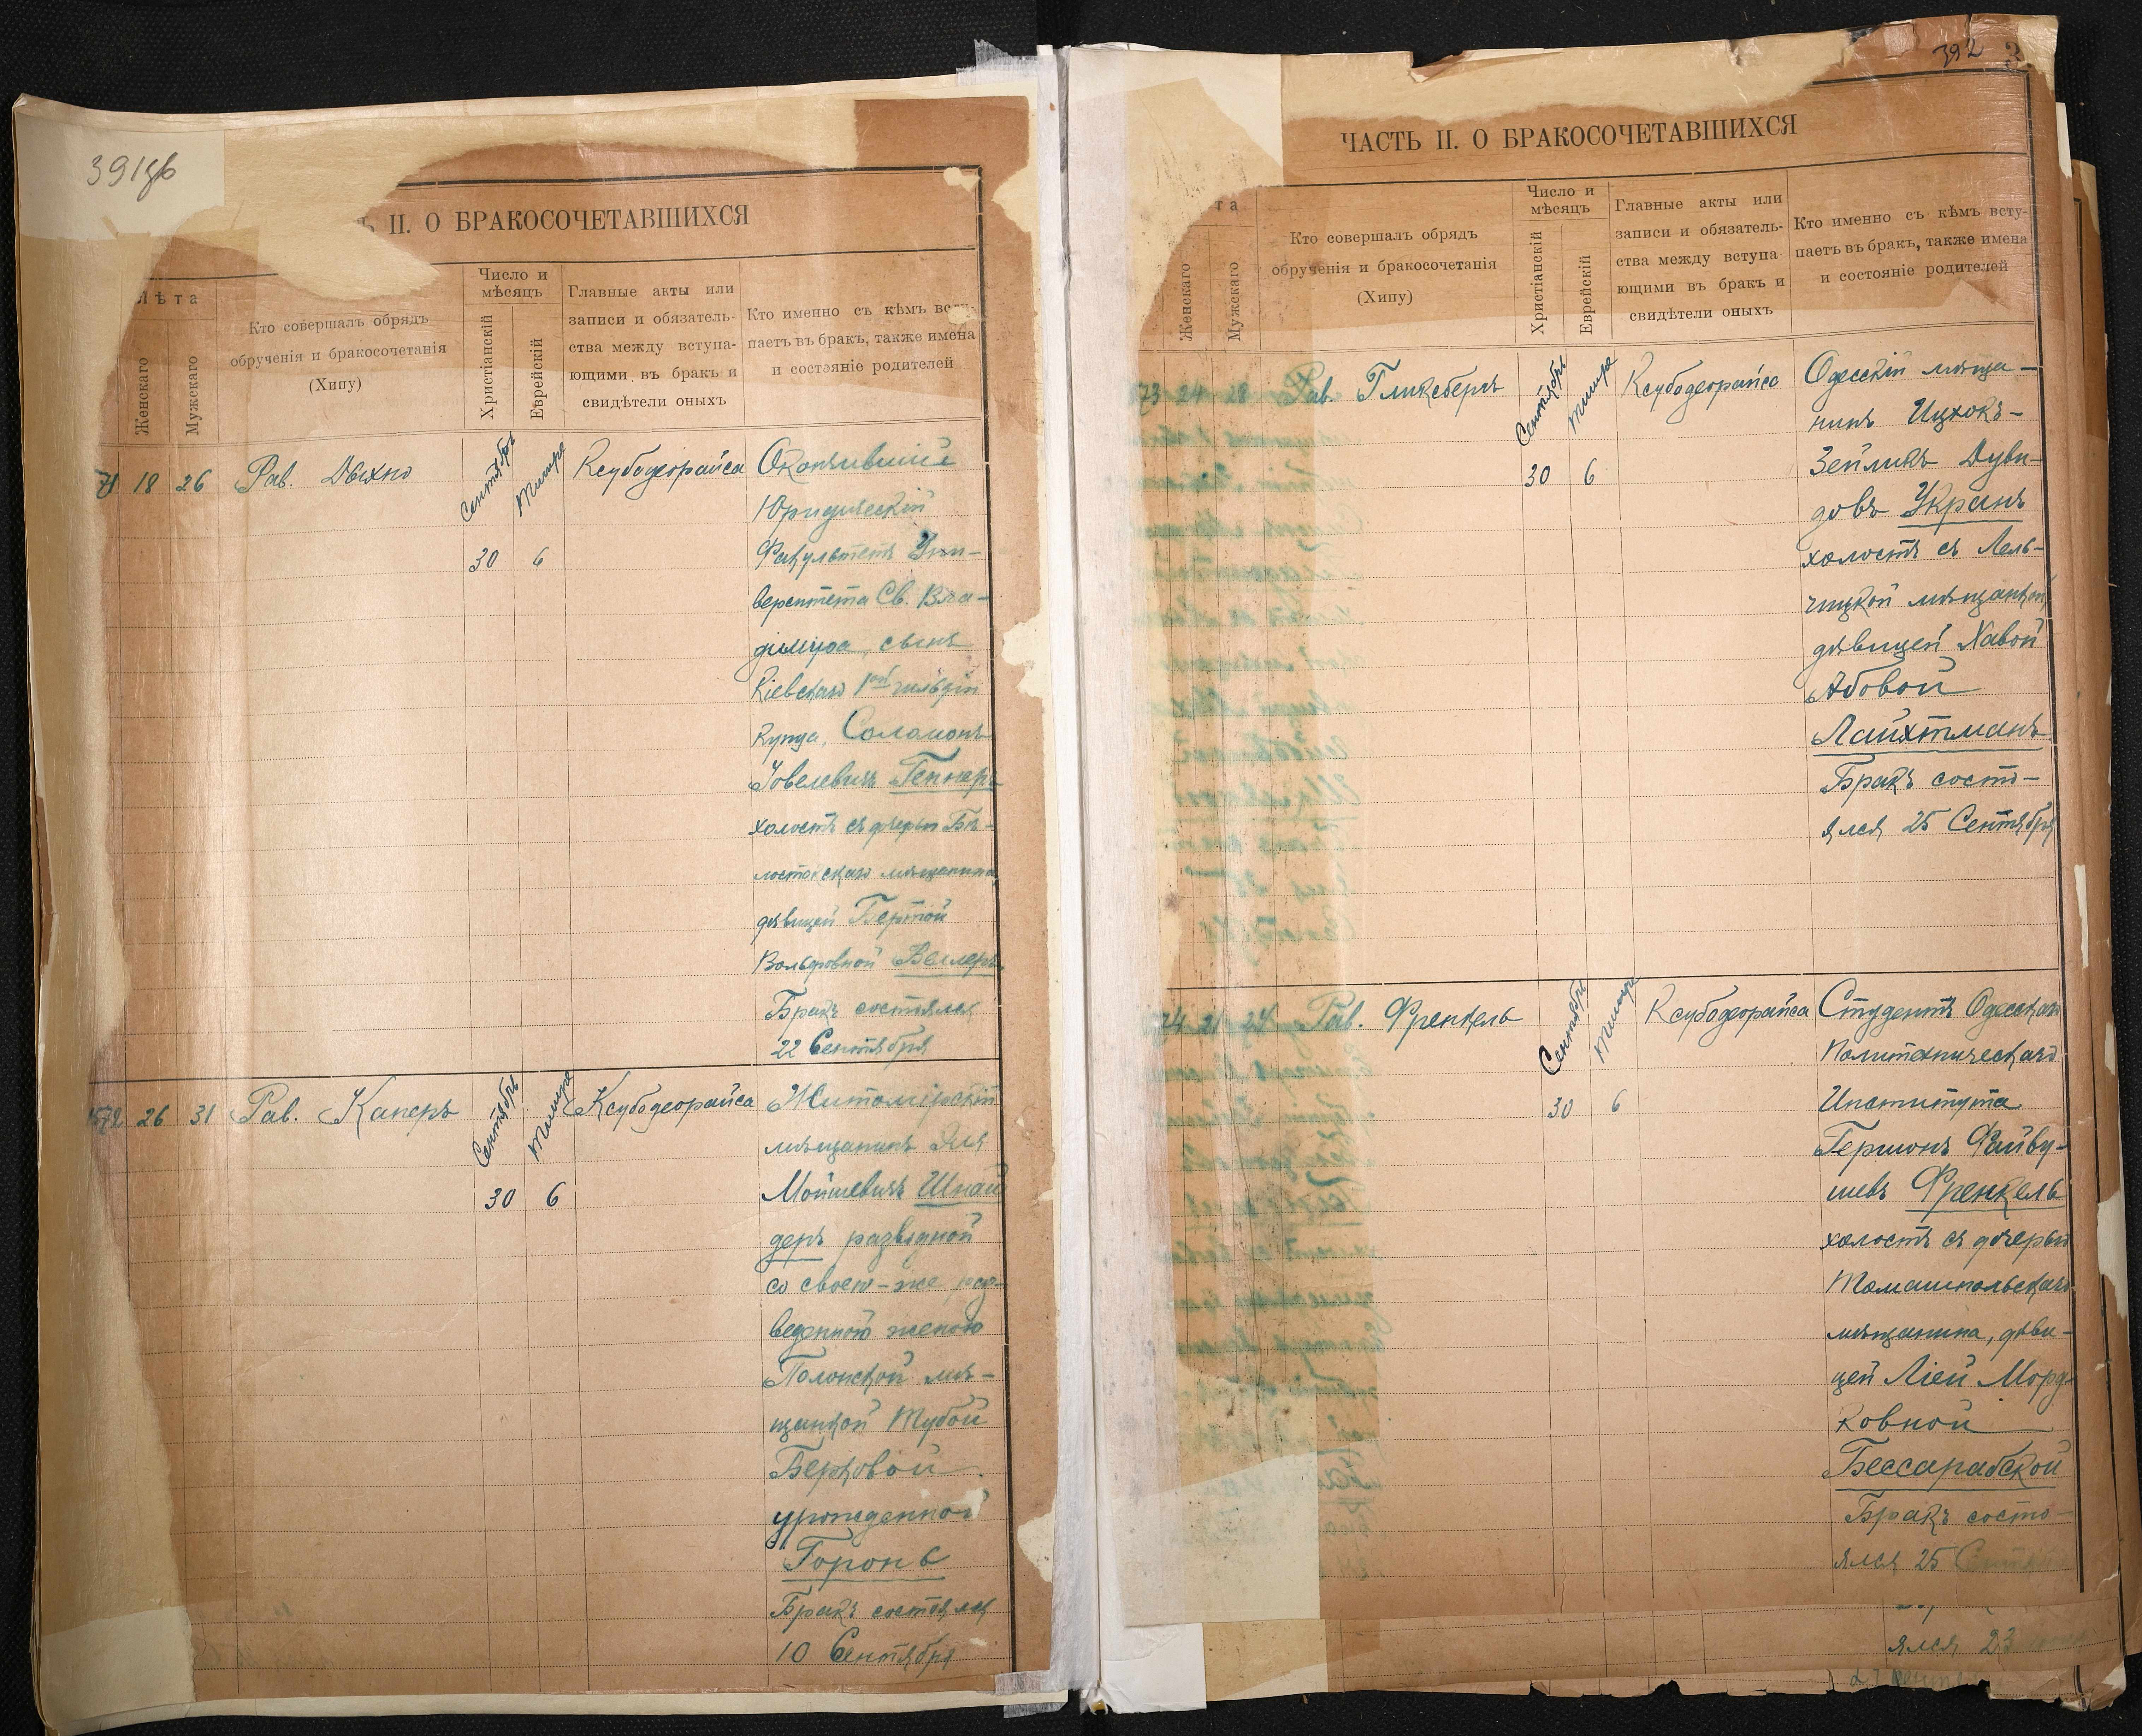 391об
Ь II. О БРАКОСОЧЕТАВШИХСЯ
Лѣта
Женскаго
Мужскаго
Кто совершалъ обрядъ
обрученія и бракосочетанія
(Хипу)
Число и
мѣсяцъ
Христіанскій
Еврейскій
Главные акты или
записи и обязатель-
ства между вступа-
ющими въ бракъ и
свидѣтели оныхъ
Кто именно съ кѣмъ всту-
паетъ въ бракъ, также имена
и состояніе родителей
71 18 26 Рав. Дыхно
Сентябрь
Тишре
30 6
Ксубодеорайса
Окончившій
Юридическій
Факультетъ Уни-
верситета Св. Вла-
диміра, сынъ
Кіевскаго 1ой гильдіи
купца, Соломонъ
Іовелевичъ Геннеръ
холостъ съ дочерью Бѣ-
лостокскаго мѣщанина
дѣвицей Бертой
Вольфовной Веллеръ.
Бракъ состоялся
22 Сентября
1572 26 31 Рав. Канеръ
Сентябрь
Тишре
30 6
Ксубодеорайса
Житомірскій
мѣщанинъ Эля
Мойшевичъ Шнай
деръ разводной
со своею-же раз-
веденною женою
Полонской мѣ-
щанкой Тубой
Берковой
урожденной
Горонъ
Бракъ состоялся
10 Сентября
392
ЧАСТЬ II. О БРАКОСОЧЕТАВШИХСЯ
та
Женскаго
Мужскаго
Кто совершалъ обрядъ
обрученія и бракосочетанія
(Хипу)
Число и
мѣсяцъ
Христіанскій
Еврейскій
Главные акты или
записи и обязатель-
ства между вступа
ющими въ бракъ и
свидѣтели оныхъ
Кто именно съ кѣмъ всту-
паетъ въ бракъ, также имена
и состояніе родителей
73 24 28 Рав. Гликсбергъ
Сентябрь
Тишре
30 6
Ксубодеорайса
Одесскій мѣща-
нинъ Ицхокъ-
Зейликъ Дуви-
довъ Укранъ
холостъ съ Лель-
чицкой мѣщанкой,
дѣвицей Хавой
Абовой
Лайхтманъ
Бракъ состо-
ялся 25 Сентября
74 21 24 Рав. Френкель
Сентябрь
Тишре
30 6
Ксубодеорайса
Студентъ Одесскаго
Политехническаго
Института
Гершонъ Файву-
шевъ Френкель
холостъ съ дочерью
Томашпольскаго
мѣщанина, дѣви-
цей Ліей Морд-
ковной
Бессарабской
Бракъ состо-
ялся 25 Сентября
ялся 23